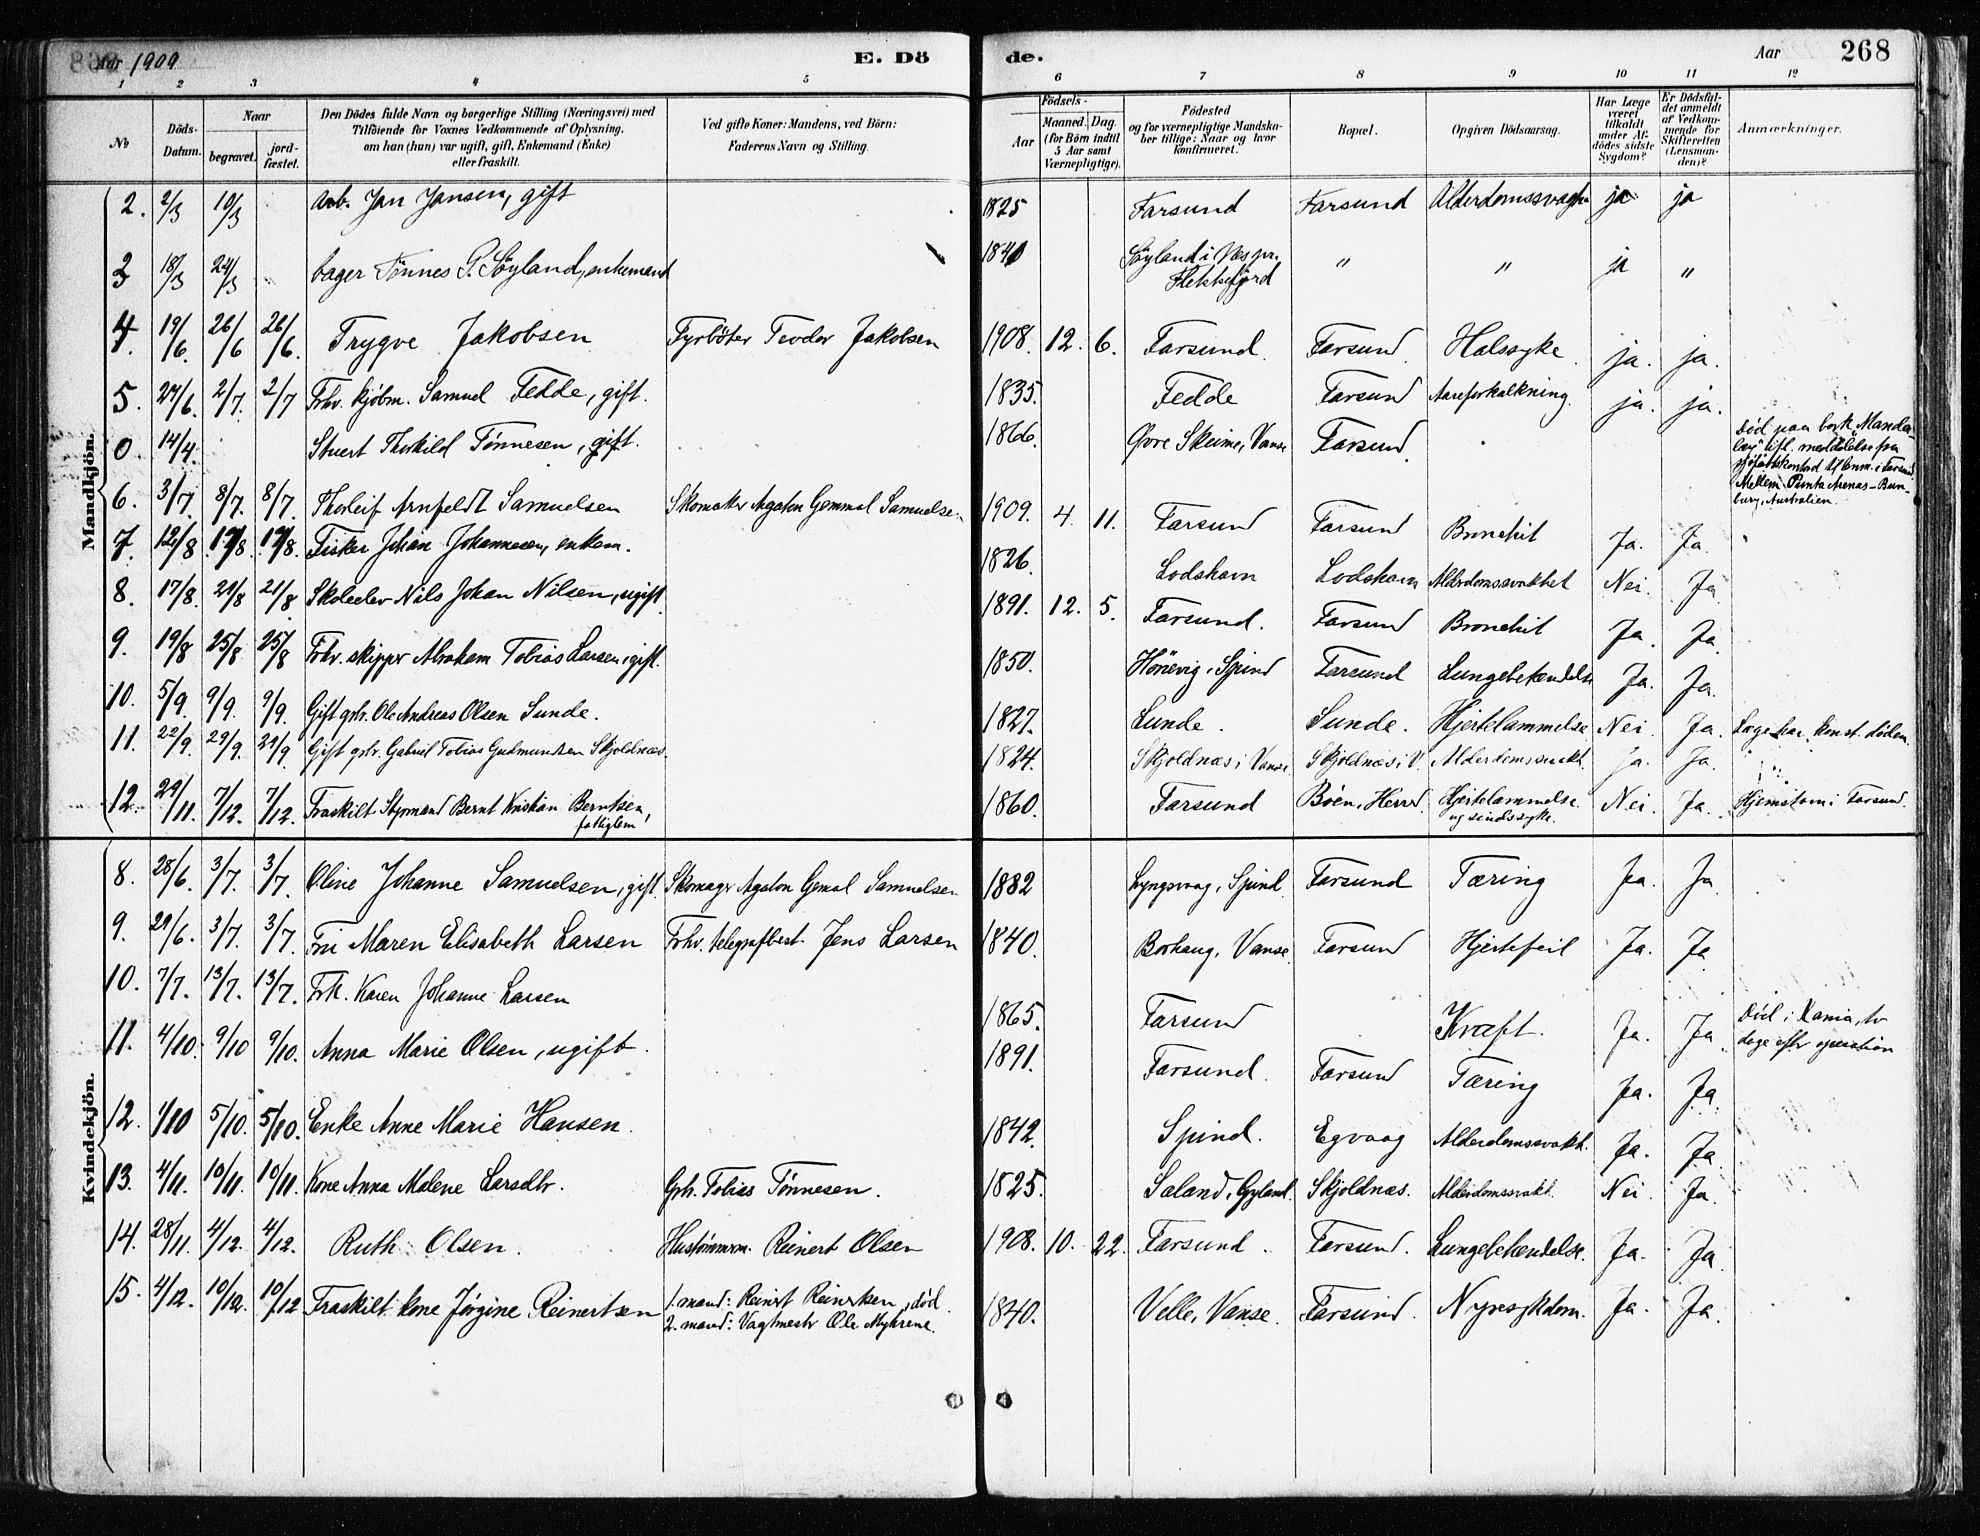 Aar 1909 E. Döde. Aar 268
1 2 3 4 5 6 7 8 9 10 11 12
No Döds-Datum. Naar begravet. jordfæstet. Den Dödes fulde Navn og borgerlige Stilling (Næringsvei) med Tilföiende for Voxnes Vedkommende af Oplysning, om han (hun) var ugift, gift, Enkemand (Enke) eller fraskilt. Ved gifte Koner: Mandens, ved Börn: Faderens Navn og Stilling. Födsels- Aar Maaned. Dag. (for Börn indtil 5 Aar samt Værnepligtige). Födested og for værnepligtige Mandskaber tillige: Naar og hvor konfirmeret. Bopæl. Opgiven Dödsaarsag. Har Læge været tilkaldt under Afdödes sidste Sygdom? Er Dödsfaldet anmeldt af Vedkommende for Skifteretten (Lensmanden)? Anmærkninger.
Mandkjön.
2. 2/3 10/3 Arb. Jan Jansen, gift 1825 Farsund Farsund Alderdomssvagh. ja ja
3 18/3 24/3 bager Tönnes P. Söyland, enkemand 1840 Söyland i Næs pr. Flekkefjord " " ja "
4. 19/6. 26/6 26/6. Trygve Jakobsen Fyrböter Teodor Jakobsen 1908. 12. 6. Farsund. Farsund. Halssyke. ja. ja.
5. 27/6. 2/7. 2/7 Frhv. kjöbm. Samuel Fedde, gift. 1835. Fedde Farsund Aareforkalkning. ja. ja.
0. 14/4. Stuert Thorkild Tönnesen, gift. 1866. Øvre Skeime, Vanse Farsund. Död paa bark "Mandalay" ifl. meddelelse fra sjöfartskontoret til enm. i Farsund. Mellem Punta Arenas - Bunbury, Australien.
6. 3/7. 8/7. 8/7. Thorleif Arnfeldt Samuelsen Skomaker Agaton Gemmal Samuelsen 1909. 4. 11. Farsund Farsund Bronchit Ja. Ja.
7. 12/8 17/8. 17/8. Fisker Johan Johannesen, enkem. 1826. Lodshavn Lodshavn Alderdomssvakhet Nei. Ja.
8. 17/8. 21/8 21/8 Skoleelev Nils Johan Nilsen, ugift. 1891. 12. 5. Farsund. Farsund Bronchit Ja. Ja.
9. 19/8 25/8 25/8 Frhv. skipper Abraham Tobias Larsen, gift. 1850. Hönevig, Spind Farsund Lungebetændelse Ja. Ja.
10. 5/9. 9/9. 9/9. Gift grbr. Ole Andreas Olsen Sunde. 1827. Sunde. Sunde. Hjertelammelse Nei. Ja. Læge har konst. döden.
11. 22/9. 29/9. 29/9 Gift grbr. Gabriel Tobias Gudmundsen Skjoldnæs. 1824. Skjoldnæs i Vanse. Skjoldnæs i V. Alderdomssvakh. Ja. Ja.
12. 29/11. 7/12. 7/12. Fraskilt Styrmand Bernt Kristian Berntsen, fattiglem 1860. Farsund Böen, Herred Hjertelammelse og sindssyke. Nei. Ja. Hjemstavn i Farsund.
Kvindekjön.
8. 28/6. 3/7. 3/7. Oline Johanne Samuelsen, gift. Skomager Agaton Gemal Samuelsen 1882 Lyngsvaag, Spind. Farsund Tæring Ja. Ja.
9. 29/6. 3/7. 3/7. Fru Maren Elisabeth Larsen Frhv. telegrafbest. Jens Larsen 1840. Borhaug, Vanse. Farsund Hjertefeil Ja. Ja
10. 7/7. 13/7. 13/7. Frk. Karen Johanne Larsen 1865. Farsund Kræft. Ja. Ja. Död i Krania, to dage efter operation
11. 4/10. 9/10 9/10. Anna Marie Olsen, ugift. 1891. Farsund. Farsund Tæring Ja. Ja.
12. 1/10 5/10. 5/10. Enke Anne Marie Hansen. 1842. Spind. Egvaag Alderdomssvakh. Ja. Ja.
13. 4/11. 10/11. 10/11. Kone Anna Malene Larsdtr. Grbr. Tobias Tönnesen. 1825. Saland, Gyland. Skjoldnæs. Alderdomssvakh. Nei. Ja.
14. 28/11. 4/12. 4/12. Ruth Olsen. Hustömmerm. Reinert Olsen 1908. 10. 22. Farsund. Farsund. Lungebetændelse. Ja. Ja
15. 4/12. 10/12. 10/12 Fraskilt kone Jörgine Reinertsen 1. mand: Reinert Reinertsen, död. 2. mand: Vagtmester Ole Myhrene. 1840. Velle, Vanse. Farsund. Nyresykdom. Ja. Ja.